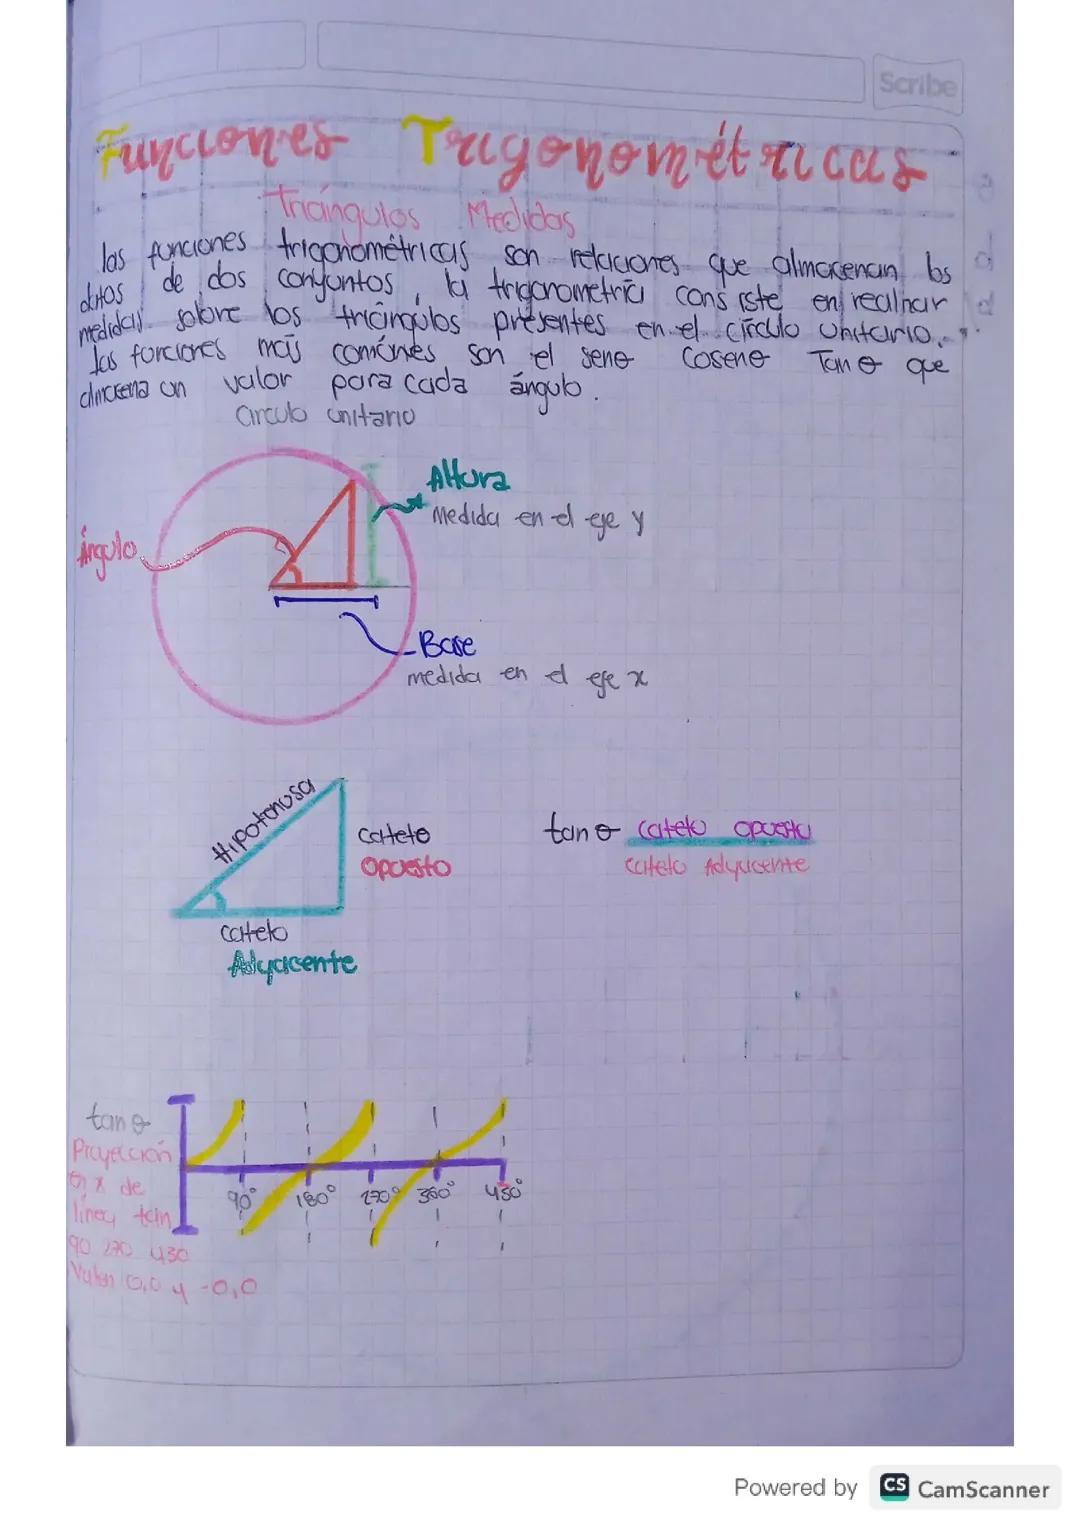 Scribe
Funciones Trigonométricas
Triángulos Medidas
las funciones trigonométricas son relaciones que almacenan los
datos de dos conjuntos, la trigonometría consiste en realinar
medidas sobre los triángulos presentes en el círculo unitario.
las funciones más comúnes son el seno coseno Tan θ que
almacena un valor para cada ángulo.
Circulo unitario
Altura
Medida en el eje y
Ángulo
Base
medida en el eje x
Hipotenusa
cateto
opuesto
tan θ cateto opuesto
cateto Adyacente
cateto
Adyacente
tan θ
Proyección
en x de
línea tan
90° 180° 270° 360° 450°
90 270 430
Valen 0,0 y -0,0
Powered by CS CamScanner